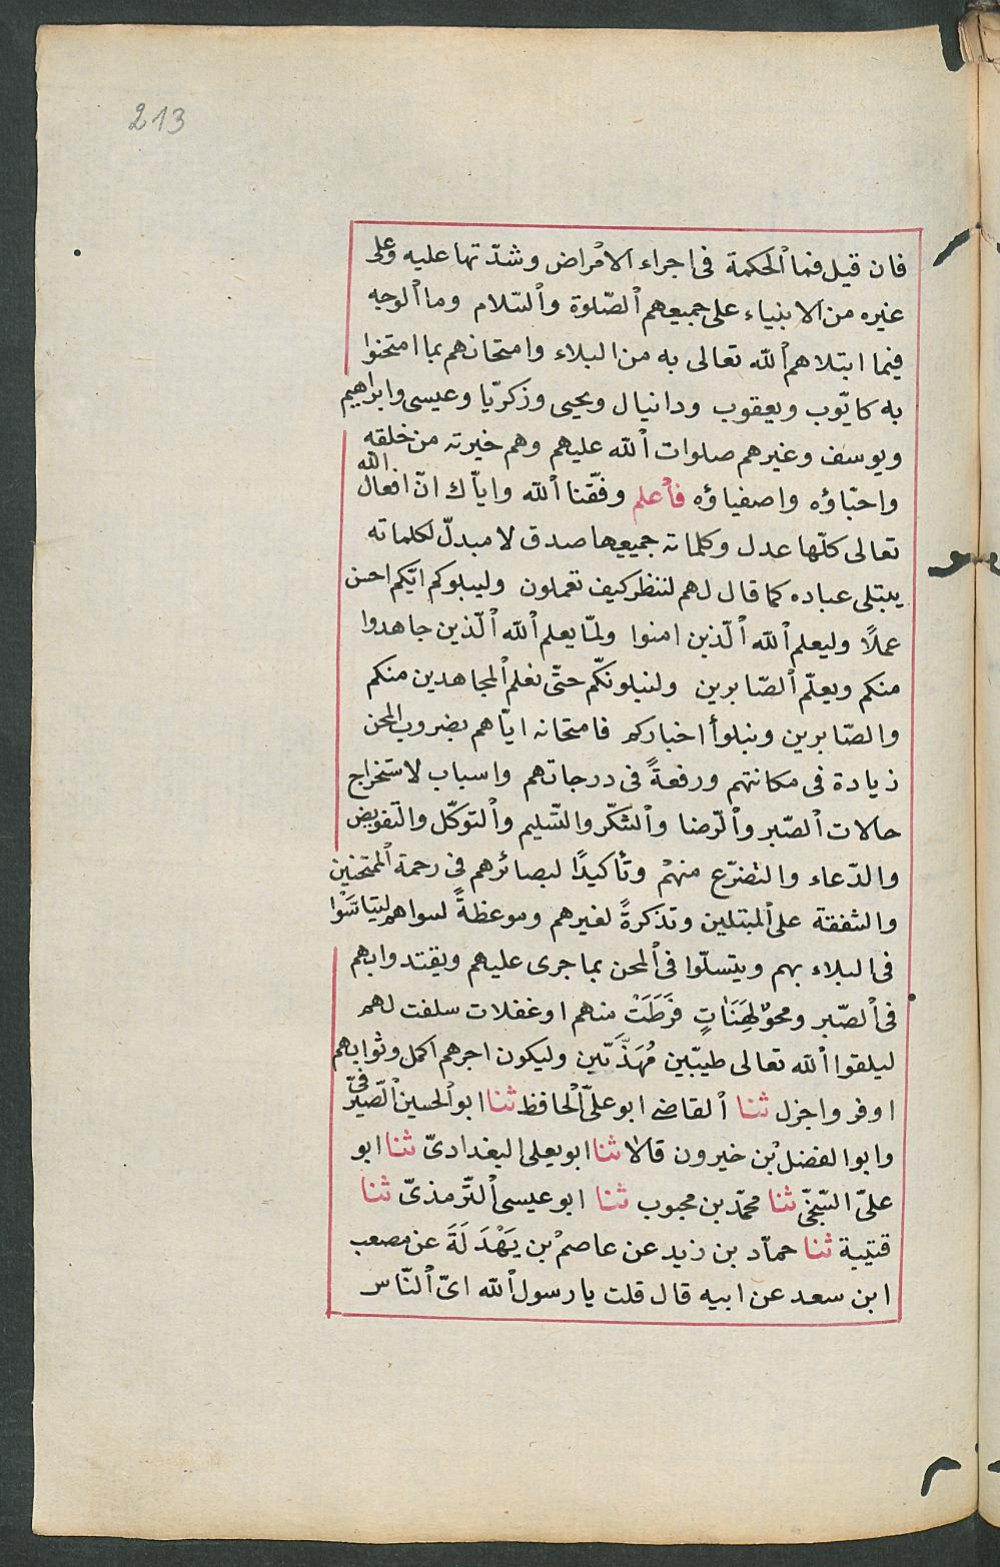 213
فان قيل فما ٱلحكمة فى اجراء الامْراض وشدّتها عليه وعلى
غيره من الانبياء على جميعهم ٱلصّلوة وٱلسّلام وما ٱلوجه
فيما ابتلاهم ٱلله تعالى به من البلاء وامتحانهم بما امتحنوا
به كايّوب ويعقوب ودانيال ويحيى وزكريّا وعيسى وابراهيم
ويوسف وغيرهم صلوات ٱلله عليهم وهم خيرته من خلقه
واحبّاؤه واصفياؤه فأعلم وفّقنا ٱلله واياّك انّ افعال الله
تعالى كلّها عدل وكلماته جميعها صدق لا مبدلّ لكلماته
يبتلى عباده كما قال لهم لننظر كيف تعملون وليبلوكم ايّكم احسن
عملًا وليعلم ٱلله ٱلّذين امنوا ولمّا يعلم ٱلله ٱلّذين جاهدوا
منكم ويعلّم ٱلصّابرين ولنبلونكّم حتّى نعلم ٱلمجاهدين منكم
والصّابرين ونبلوأ اخباركم فامتحانه ايّاهم بضروب المحن
زيادة فى مكانتهم ورفعةً فى درجاتهم واسباب لاستخراج
حالات ٱلصّبر وٱلرّضا وٱلشكّر والتّسليم وٱلتوكّل والتّفويض
والدّعاء والتضرّع منهمْ وتأكيدًا لبصائرهم فى رحمة ٱلممتحنين
والشفقة على ٱلمبتلين وتذكرةً لغيرهم وموعظةً لسواهم ليتاسَّوْا
فى البلاء بهم ويتسلّوا فى ٱلمحن بما جرى عليهم ويقتدوا بهم
فى ٱلصّبر ومحوٌ لِهَنَاتٍ فَرَطَتْ منهم او غفلات سلفت لهم
ليلقوا ٱلله تعالى طيبّين مُهَذَّبّين وليكون اجرهم اكمل وثوابهم
اوفر واجزل ثنا ٱلقاضى ابو علىّ ٱلحافظ ثنا ابو ٱلحسين ٱلصّيرفىّ
وابو الفضل بْن خيرون قالا ثنا ابو يعلى البغدادىّ ثنا ابو
علىّ السّنجىّ ثنا محمّد بن محبوب ثنا ابو عيسى ٱلتّرمذىّ ثنا
قتيبة ثنا حماّد بن زيد عن عاصمْ بن بَهْدَلَةَ عن مصعب
ابن سعد عن ابيه قال قلت يا رسول ٱلله اىّ ٱلنّاس